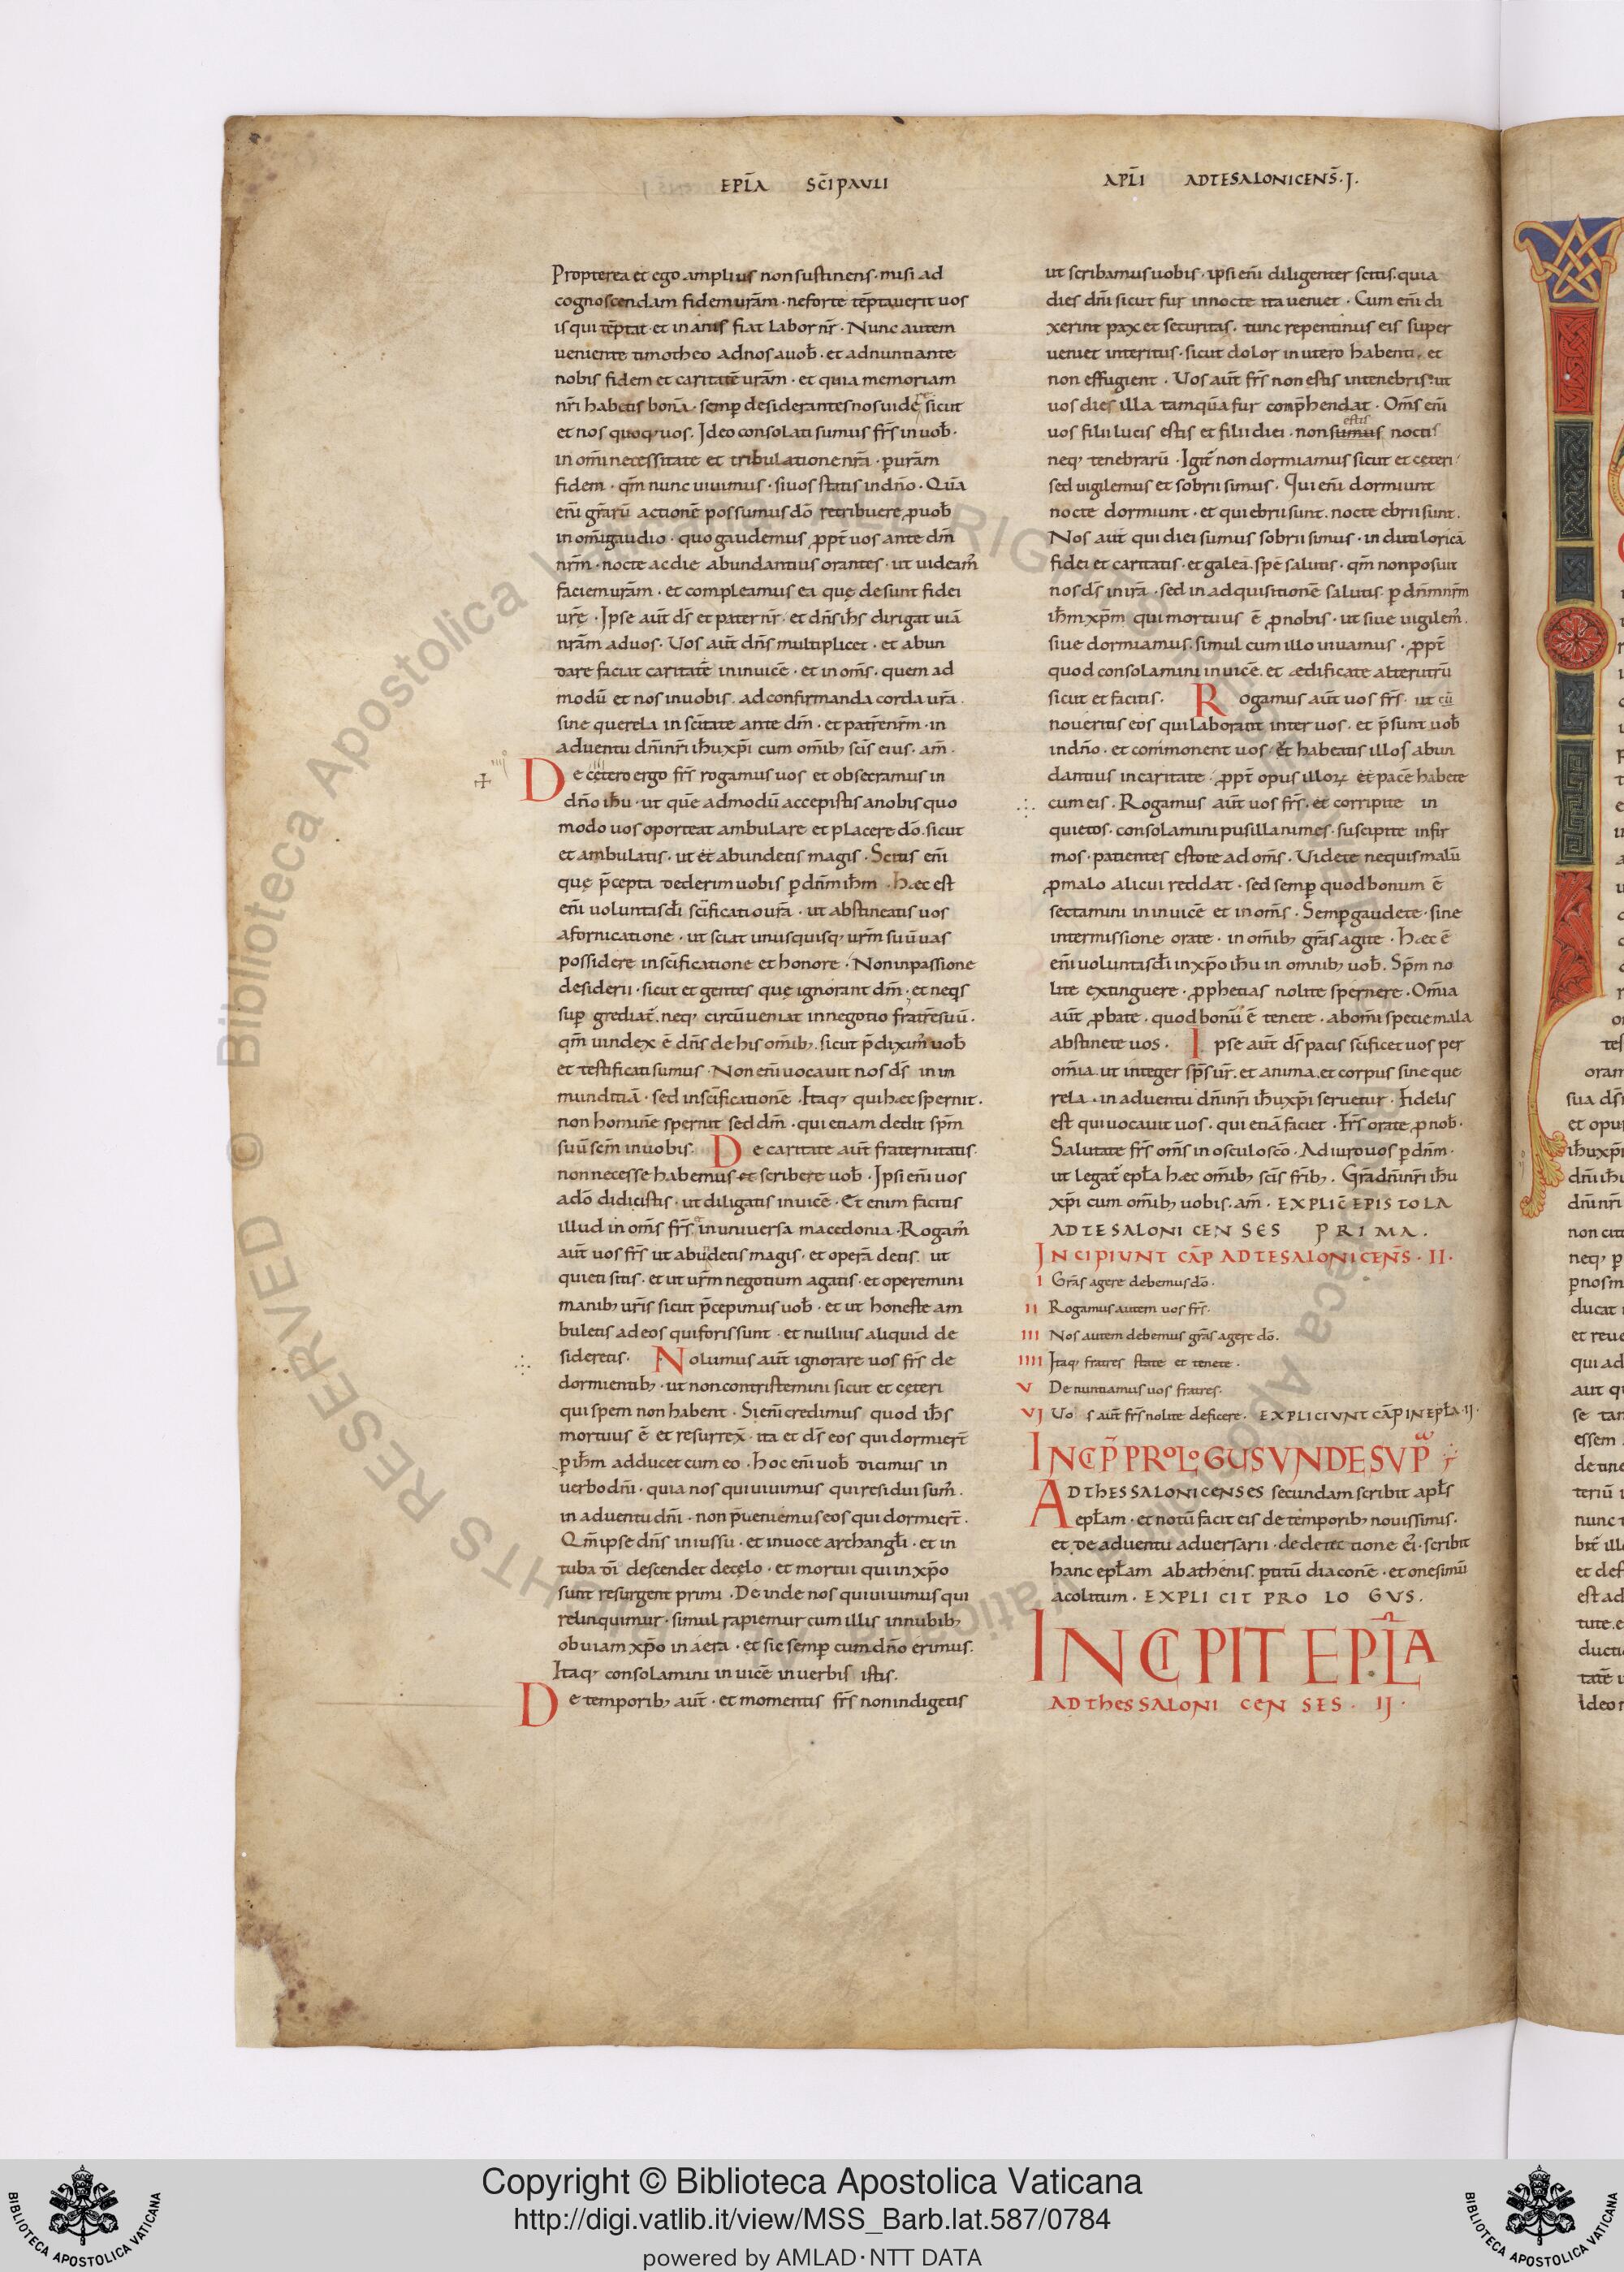 EPL̄A SC̄I PAVLI
APL̄I AD TESALONICENS̄. J.
Propterea et ego amplius non sustinens· misi ad
cognoscendam fidem ur̄am· ne forte tēptauerit uos
is qui tēptat· et inanis fiat labor nr̄· Nunc autem
ueniente timotheo ad nos a uob̄· et adnuntiante
nobis fidem et caritatē ur̄am· et quia memoriam
nr̄i habetis bonā· semp̄ desiderantes nos uidere sicut
et nos quoq; uos. Ideo consolati sumus fr̄s in uob̄·
in om̄i necessitate et tribulatione nr̄a· p̲ ur̄am
fidem· qm̄ nunc uiuimus· si uos statis in dn̄o· Qūa
eni̅ gr̄arū actionē possumus dō retribuere p̲ uob̄
in om̄i gaudio· quo gaudemus p̲pt̄ uos ante dm̄
nr̄m· nocte ac die abundantius orantes· ut uideam̄
faciem ur̄am· et compleamus ea quę desunt fidei
ur̄ę· Ipse aūt ds̄ et pater nr̄· et dn̄s ih̄s dirigat uiā
nr̄am ad uos. Uos aūt dn̄s multiplicet· et abun
dare faciat caritatē in inuicē· et in om̄s· quem ad
modū et nos in uobis. ad confirmanda corda ur̄a.
sine querela in sc̄itate ante dm̄· et patrē nr̄m· in
aduentu dn̄i nr̄i ih̄u xp̄i cum om̄ib; sc̄is eius. am̄·
De cetero ergo fr̄s rogamus uos et obsecramus in
dn̄o ih̄u· ut quē admodū accepistis a nobis quo
modo uos oporteat ambulare et placere dō. sicut
et ambulatis· ut et abundetis magis· Scitis eni̅
quę p̄cepta dederim uobis p̲ dn̄m ih̄m· Haec est
eni̅ uoluntas dī sc̄ificatio ur̄a· ut abstineatis uos
a fornicatione· ut sciat unusquisq; ur̄m suū uas
possidere in sc̄ificatione et honore· Non in passione
desiderii· sicut et gentes quę ignorant dm̄· et neqs
sup̲ grediat̄. neq; circūueniat in negotio fratrē suū.
qm̄ uindex ē dn̄s de his om̄ib;. sicut p̄dixim̄ uob̄
et testificati sumus· Non eni̅ uocauit nos ds̄ in in
munditiā· sed in sc̄ificationē· Itaq; qui haec spernit.
non hominē spernit sed dm̄· qui etiam dedit sp̄m
suū sc̄m in uobis. De caritate aūt fraternitatis.
non necesse habemus et scribere uob̄· Ipsi eni̅ uos
a dō didicistis· ut diligatis inuicē· Et enim facitis
illud in om̄s fr̄s in uniuersa macedonia· Rogam̄
aūt uos fr̄s ut abūdetis magis· et operā detis ut
quieti sitis· et ut ur̄m negotium agatis· et operemini
manib; ur̄is sicut p̄cepimus uob̄· et ut honeste am
buletis ad eos qui foris sunt· et nullius aliquid de
sideretis. Nolumus aūt ignorare uos fr̄s de
dormientib;· ut non contristemini sicut et cęteri
qui spem non habent· Si eni̅ credimus quod ih̄s
mortuus ē et resurrex̄· ita et ds̄ eos qui dormier̄t
p̲ ih̄m adducet cum eo· Hoc eni̅ uob̄ dicimus in
uerbo dn̄i· quia nos qui uiuimus qui residui sum̄.
in aduentu dn̄i· non p̄ueniemus eos qui dormier̄t·
Qm̄ ipse dn̄s in iussu· et in uoce archangl̄i· et in
tuba dī descendet de cęlo· et mortui qui in xp̄o
sunt resurgent primi· Deinde nos qui uiuimus qui
relinquimur· simul rapiemur cum illis in nubib;
obuiam xp̄o in aera· et sic semp̲ cum dn̄o erimus.
Itaq; consolamini inuicē in uerbis istis.
De temporib; aūt· et momentis fr̄s non indigetis
ut scribamus uobis· ipsi eni̅ diligenter scitis. quia
dies dn̄i sicut fur in nocte ita ueniet· Cum eni̅ di
xerint pax et securitas· tunc repentinus eis super
ueniet interitus· sicut dolor in utero habenti. et
non effugient· Uos aūt fr̄s non estis in tenebris· ut
uos dies illa tamquā fur comp̄hendat· Om̄s eni̅
uos filii lucis estis et filii diei· non sumus estis noctis
neq; tenebrarū· Igit̄ non dormiamus sicut et ceteri·
sed uigilemus et sobrii simus· Qui eni̅ dormiunt
nocte dormiunt· et qui ebrii sunt. nocte ebrii sunt.
Nos aūt qui diei sumus sobrii simus· induti loricā
fidei et caritatis· et galeā. spē salutis· qm̄ non posuit
nos ds̄ in irā· sed in adquisitionē salutis· p̲ dn̄m nr̄m
ih̄m xp̄m qui mortuus ē p̲ nobis· ut siue uigilem̄.
siue dormiamus. simul cum illo uiuamus· p̲pt̄
quod consolamini inuicē. et aedificate alterutrū
sicut et facitis. Rogamus aūt uos fr̄s· ut cū
noueritis eos qui laborant inter uos· et p̄sunt uob̄
in dn̄o· et commonent uos· et habeatis illos abun
dantius in caritate· p̲pt̄ opus illoꝝ et pacē habete
cum eis. Rogamus aūt uos fr̄s· et corripite in
quietos· consolamini pusillanimes· suscipite infir
mos· patientes estote ad om̄s· Uidete ne quis malū
p̲ malo alicui reddat· sed semp̲ quod bonum ē
sectamini in inuicē et in om̄s· Semp̲ gaudete· sine
intermissione orate· in om̄ib; gr̄as agite· Haec ē
eni̅ uoluntas dī in xp̄o ih̄u in omnib; uob̄. Sp̄m no
lite extinguere· p̲phetias nolite spernere· Om̄ia
aūt p̲bate· quod bonū ē tenete· ab om̄i specie mala
abstinete uos· Ipse aūt ds̄ pacis sc̄ificet uos per
om̄ia. ut integer sp̄s ur̄. et anima. et corpus sine que
rela· in aduentu dn̄i nr̄i ih̄u xp̄i seruetur· Fidelis
est qui uocauit uos· qui etiā faciet· Fr̄s orate p̲ nob̄·
Salutate fr̄s om̄s in osculo sc̄o· Adiuro uos p̲ dn̄m·
ut legat̄ epl̄a haec om̄ib; sc̄is fr̄ib;. Gr̄a dn̄i nr̄i ih̄u
xp̄i cum om̄ib; uobis. am̄· EXPLIC̄ EPISTOLA
AD TESALONICENSES PRIMA.
INCIPIUNT CAP̄ AD TESALONICENS̄· II·
I Gr̄as agere debemus dō.
II Rogamus autem uos fr̄s.
III Nos autem debemus gr̄as agere dō.
IIII Itaq; fratres state et tenete·
V Denuntiamus uos fratres.
VJ Uos aūt fr̄s nolite deficere. EXPLICIUNT CAP̄ IN EPL̄A· IJ·
INCP̄ PROLOGUS UNDE SUP̄
AD THESSALONICENSES secundam scribit apl̄s
epl̄am· et notū facit eis de temporib; nouissimis·
et de aduentu aduersarii· de detectione ei̅· scribit
hanc epl̄am ab athenis· p̲ titū diaconē· et onesimū
acolitum. EXPLICIT PROLOGUS.
INCIPIT EPL̄A
AD THESSALONICENSES· IJ·
Copyright © Biblioteca Apostolica Vaticana
http://digi.vatlib.it/view/MSS_Barb.lat.587/0784
powered by AMLAD·NTT DATA